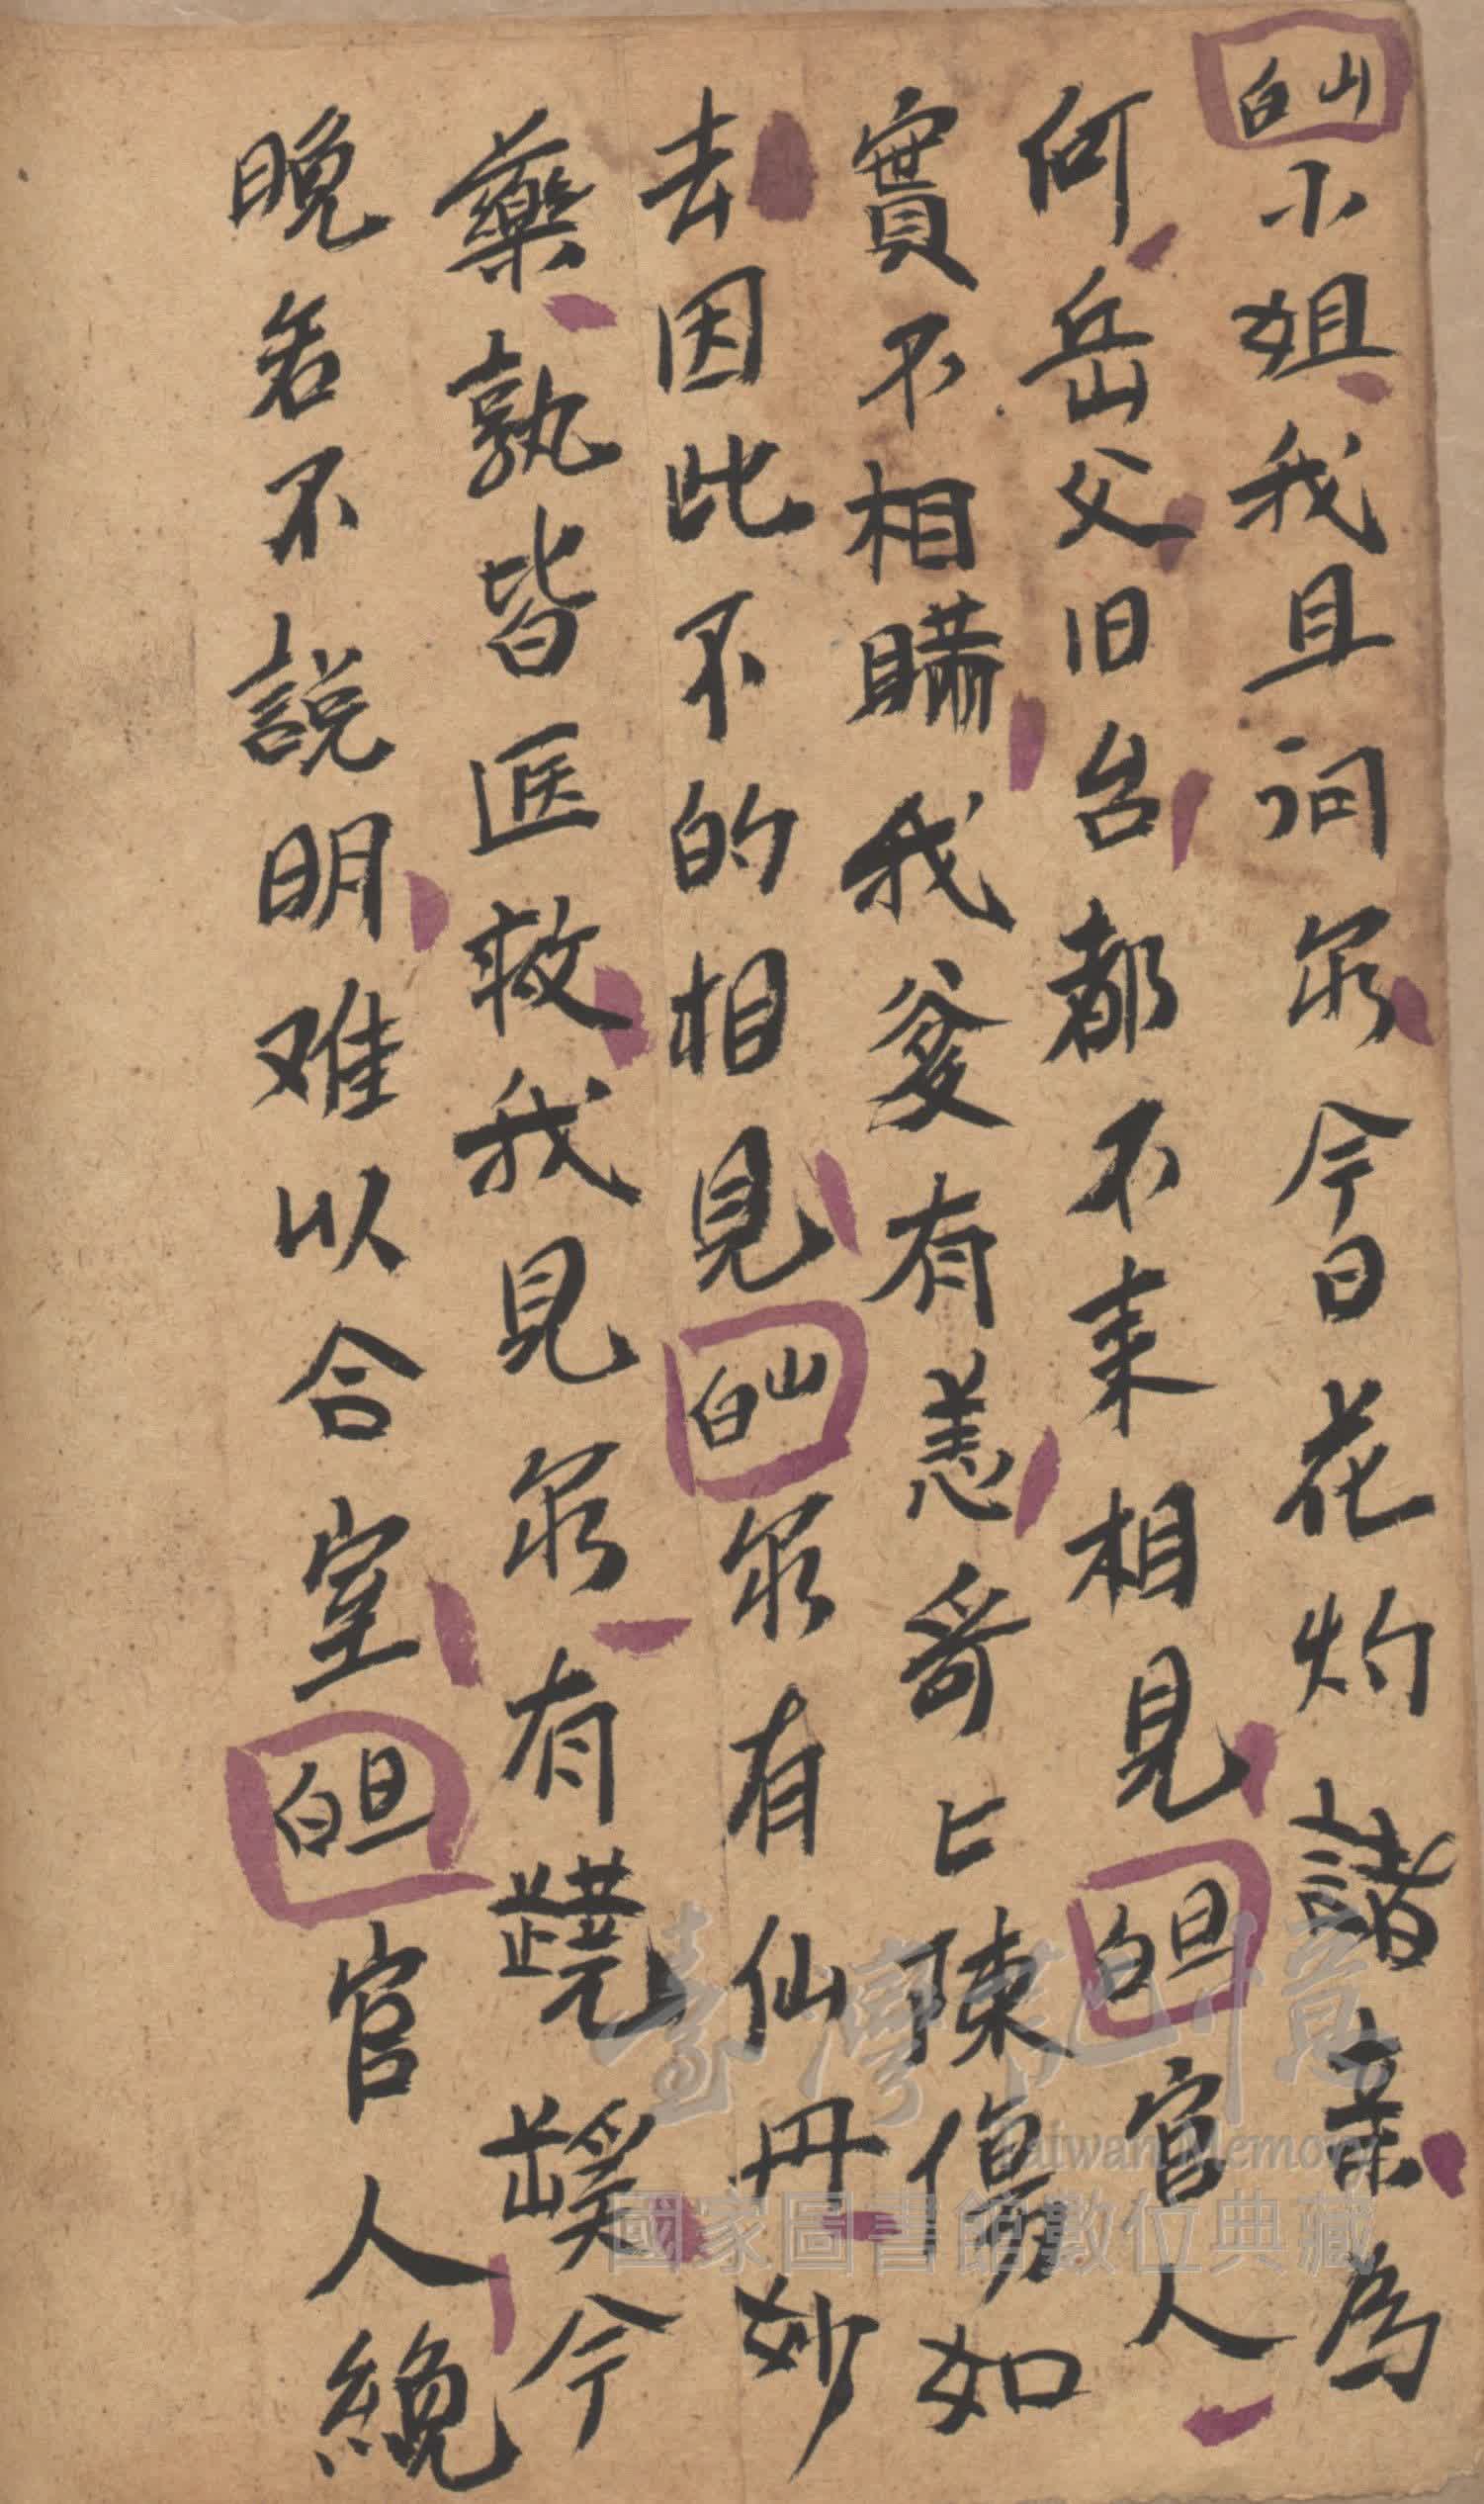 山白小姐我且问尔今日花灼諸亲為
何岳父旧台都不来相見旦白官人
實不相瞞我爹有恙哥匕陳傷如
去因此不的相見山白尔有仙丹妙
藥孰皆医救我見尔有蹺蹊今
晚若不説明难以合室旦白官人絶
臺灣記憶
Taiwan Memory
國家圖書館數位典藏